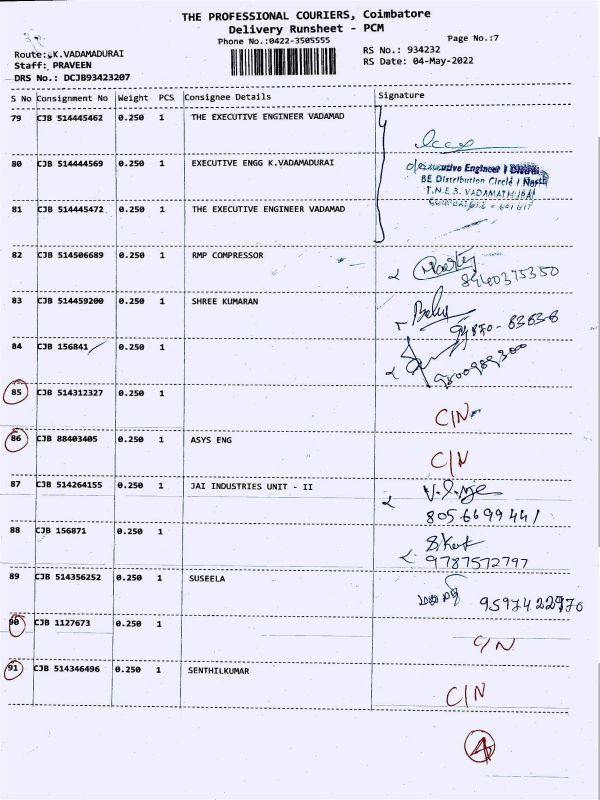 THE PROFESSIONAL COURIERS, Coimbatore
Delivery Runsheet - PCM
Phone No.:0422-3505555
Page No.:7
Route: K.VADAMADURAI
RS No.: 934232
Staff: PRAVEEN
RS Date: 04-May-2022
DRS No.: DCJB93423207
S No Consignment No Weight PCS Consignee Details Signature
79 CJB 514445462 0.250 1 THE EXECUTIVE ENGINEER VADAMAD
80 CJB 514444569 0.250 1 EXECUTIVE ENGG K.VADAMADURAI
Executive Engineer
BE Distribution Circle / North
T.N.E.B. VADAMATHURAI
81 CJB 514445472 0.250 1 THE EXECUTIVE ENGINEER VADAMAD
82 CJB 514506689 0.250 1 RMP COMPRESSOR
83 CJB 514459200 0.250 1 SHREE KUMARAN
84 CJB 156841 0.250 1
85 CJB 514312327 0.250 1 C/N
86 CJB 88403405 0.250 1 ASYS ENG C/N
87 CJB 514264155 0.250 1 JAI INDUSTRIES UNIT - II
8056699441
88 CJB 156871 0.250 1
9787572797
89 CJB 514356252 0.250 1 SUSEELA
90 CJB 1127673 0.250 1 C/N
91 CJB 514346496 0.250 1 SENTHILKUMAR C/N
4